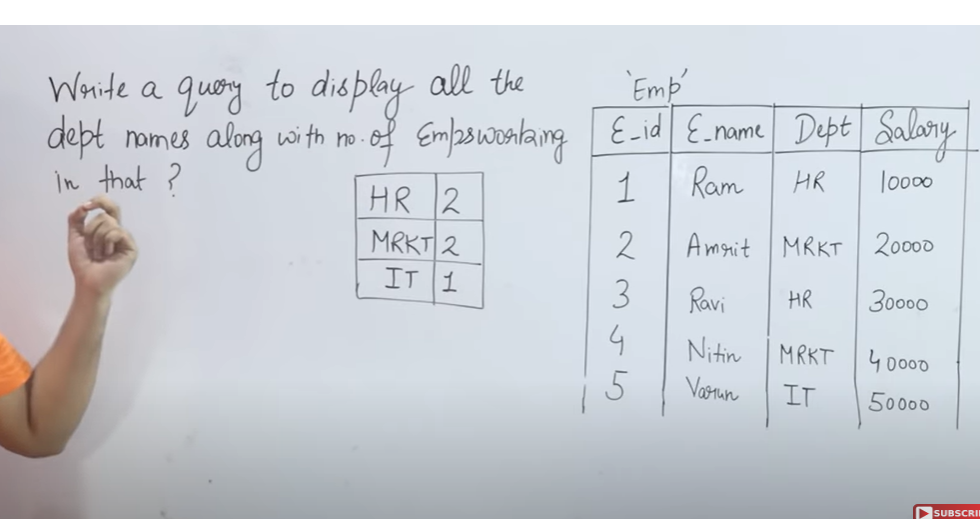 Write a query to display all the
dept names along with no. of Emps working
in that ?
HR 2
MRKT 2
IT 1
'Emp'
E_id E_name Dept Salary
1 Ram HR 10000
2 Amrit MRKT 20000
3 Ravi HR 30000
4 Nitin MRKT 40000
5 Varun IT 50000